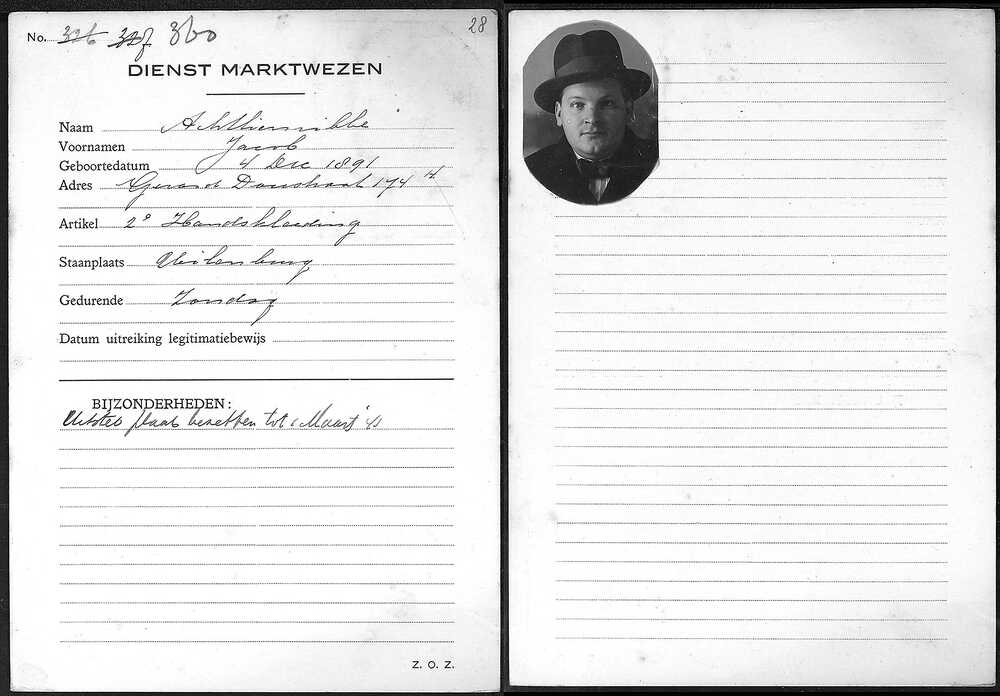 28
No. 326 327 360
DIENST MARKTWEZEN
Naam Achttienribbe
Voornamen Jacob
Geboortedatum 4 Dec 1891
Adres Gerard Doustraat 174 II
Artikel 2e Handskleeding
Staanplaats Uilenburg
Gedurende Zondag
Datum uitreiking legitimatiebewijs
BIJZONDERHEDEN:
Uitstel plaats bezetten tot 1 Maart '41
Z. O. Z.